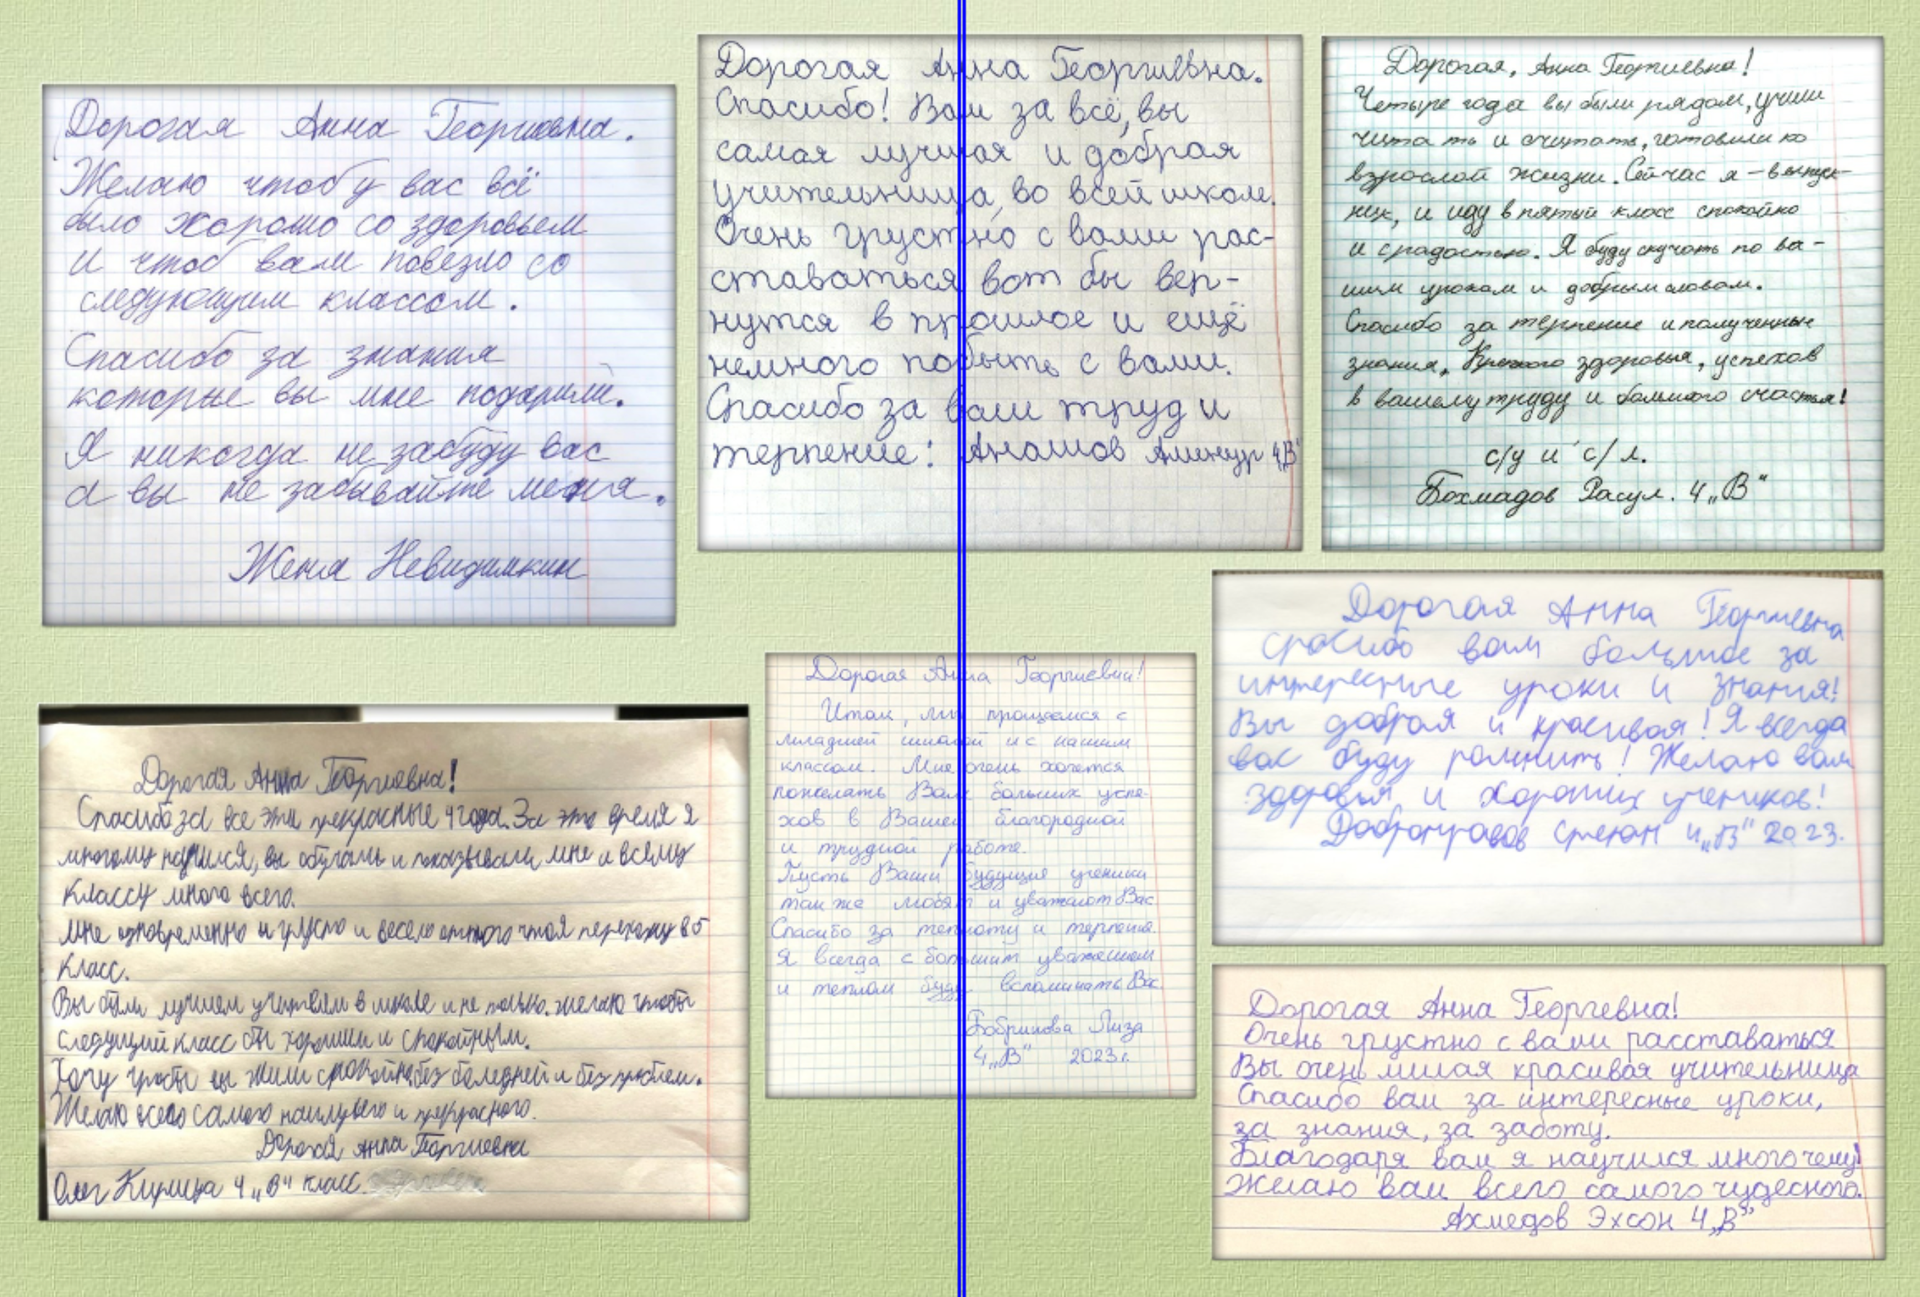 Дорогая Анна Георгиевна.
Желаю чтоб у вас всё
было хорошо со здоровьем
и чтоб вам повезло со
следующим классом.
Спасибо за знания
которые вы мне подарили.
Я никогда не забуду вас
а вы не забывайте меня.
Женя Невидимкин
Дорогая Анна Георгиевна.
Спасибо! Вам за всё, вы
самая лучшая и добрая
учительница, во всей школе.
Очень грустно с вами рас-
ставаться вот бы вер-
нутся в прошлое и ещё
немного побыть с вами.
Спасибо за ваш труд и
терпение: 4„В"
Дорогая, Анна Георгиевна!
Четыре года вы были рядом, учили
читать и считать, готовили ко
взрослой жизни. Сейчас я - выпуск-
ник, и иду в пятый класс спокойно
и с радостью. Я буду скучать по ва-
шим урокам и добрым словам.
Спасибо за терпение и полученные
знания. Крепкого здоровья, успехов
в вашему труду и большого счастья!
с/у и с/л.
Бохмадов Расул. 4„В"
Дорогая Анна Георгиевна
спасибо вам большое за
интересные уроки и знания!
Вы добрая и красивая! Я всегда
вас буду помнить! Желаю вам
здоровья и хороших учеников!
Добронравов Степан 4„В" 2023.
Дорогая Анна Георгиевна!
Итак, мы прощаемся с
младшей школой и с нашим
классом. Мне очень хочется
пожелать Вам больших успе-
хов в Вашей благородной
и трудной работе.
Пусть Ваши будущие ученики
так же любят и уважают Вас
Спасибо за теплоту и терпение.
Я всегда с большим уважением
и теплом буду вспоминать Вас
Бобрикова Лиза
4„В" 2023г.
Дорогая Анна Георгиевна!
Спасибо за все эти прекрасные 4 года. За это время я
многому научился, вы обучали и показывали мне и всему
классу много всего.
Мне одновременно и грустно и весело оттого что я перехожу в 5
класс.
Вы были лучшем учителем в школе и не только. желаю чтобы
следущий класс был хорошим и спокойным.
Хочу чтобы вы жили спокойно, без болезней и без проблем.
Желаю всего самого наилучшего и прекрасного.
Дорогая Анна Георгиевна
Олег Кирлица 4„В" класс.
Дорогая Анна Георгевна!
Очень грустно с вами расставаться
Вы очень милая красивая учительница
Спасибо вам за интересные уроки,
за знания, за заботу.
Благодаря вам я научился многочему!
Желаю вам всего самого чудесного.
Ахмедов Эхсон 4„В"